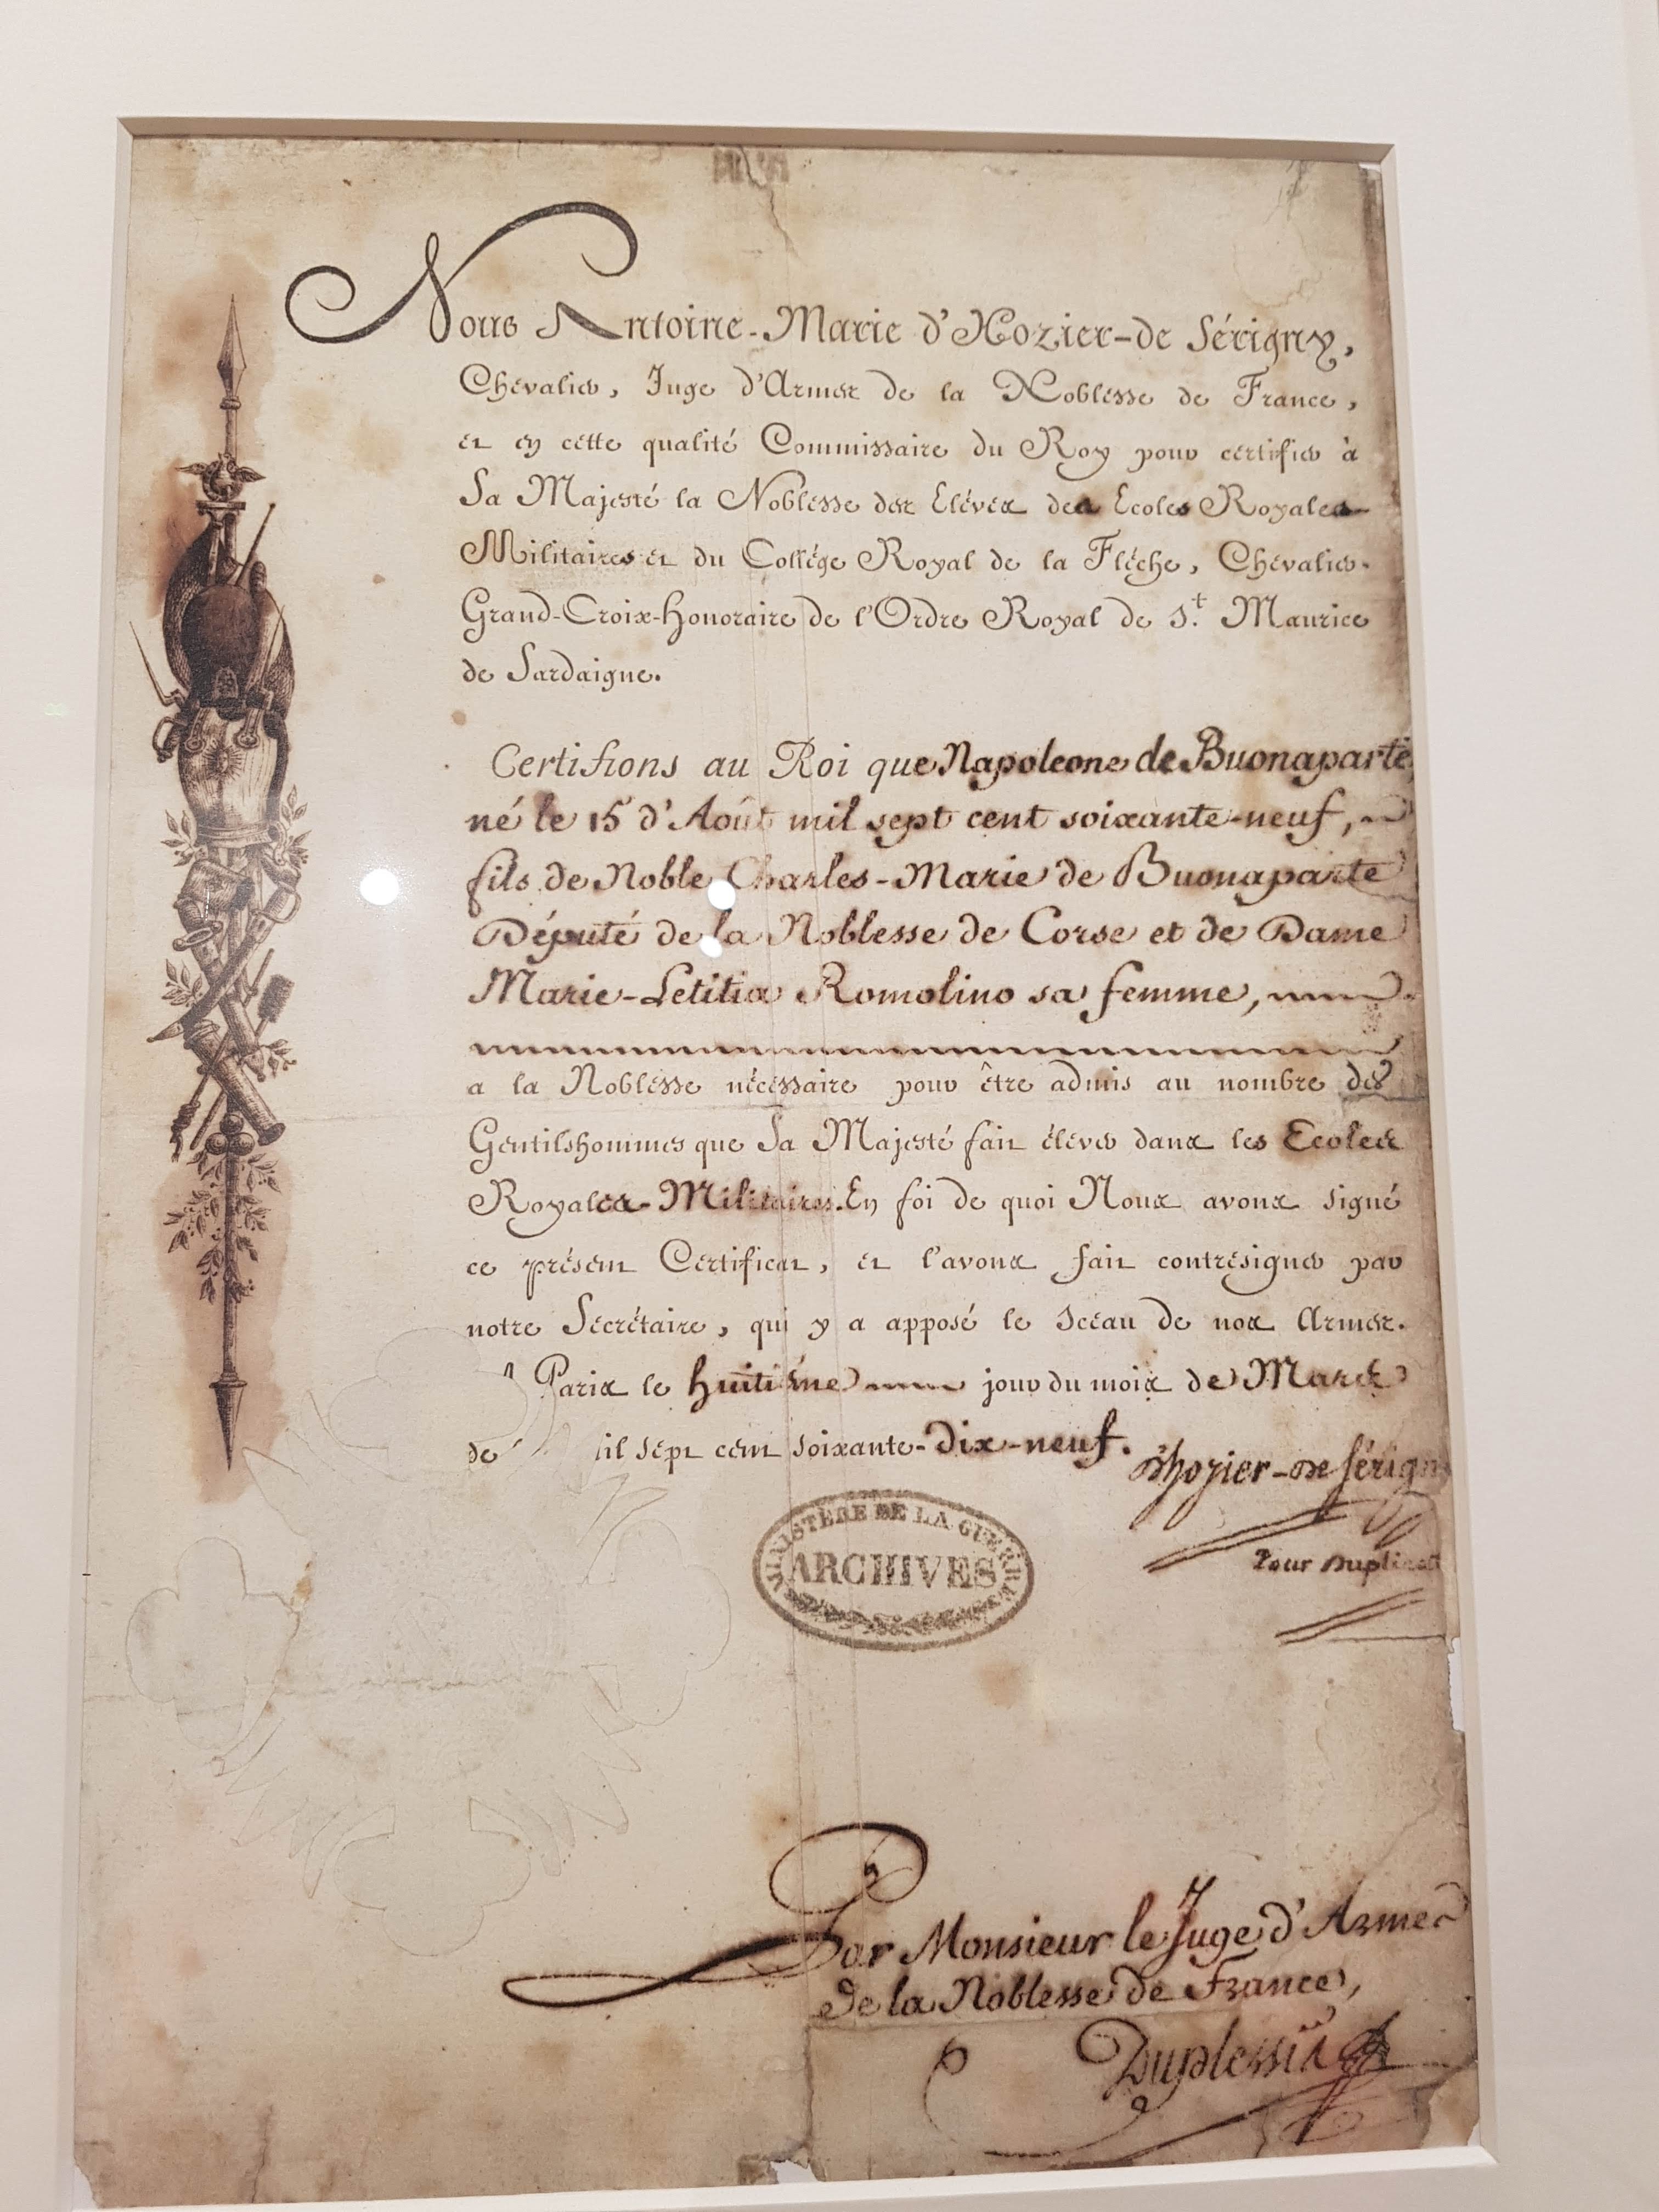 Nous Antoine-Marie d'Hozier-de Sérigny,
Chevalier, Juge d'Armes de la Noblesse de France,
et en cette qualité Commissaire du Roy pour certifier à
Sa Majesté la Noblesse des Elèves des Ecoles Royales-
Militaires et du Collège Royal de la Flèche, Chevalier-
Grand-Croix-Honoraire de l'Ordre Royal de St. Maurice
de Sardaigne.
Certifions au Roi que Napoleone de Buonaparte
né le 15 d'Août mil sept cent soixante-neuf,
fils de Noble Charles-Marie de Buonaparte
Député de la Noblesse de Corse et de Dame
Marie-Letitia Romolino sa femme,
a la Noblesse nécessaire pour être admis au nombre des
Gentilshommes que Sa Majesté fait élever dans les Ecoles
Royales-Militaires. En foi de quoi Nous avons signé
ce présent Certificat, et l'avons fait contresigner par
notre Sécrétaire, qui y a apposé le Sceau de nos Armes.
A Paris le huitième jour du mois de Mars
de il sept cent soixante-dix-neuf.
d'hozier-de Sérigny
Pour Duplicata
MINISTÈRE DE LA GUERRE
ARCHIVES
Par Monsieur le Juge d'Armes
de la Noblesse de France,
Duplessis